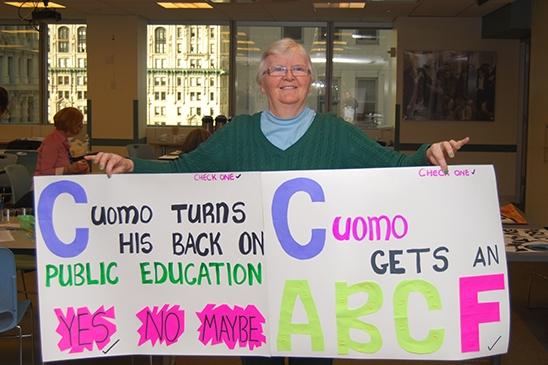 CHECK ONE ✓
CUOMO TURNS
HIS BACK ON
PUBLIC EDUCATION
YES NO MAYBE
✓
CHECK ONE ✓
CUOMO
GETS AN
ABCF
✓